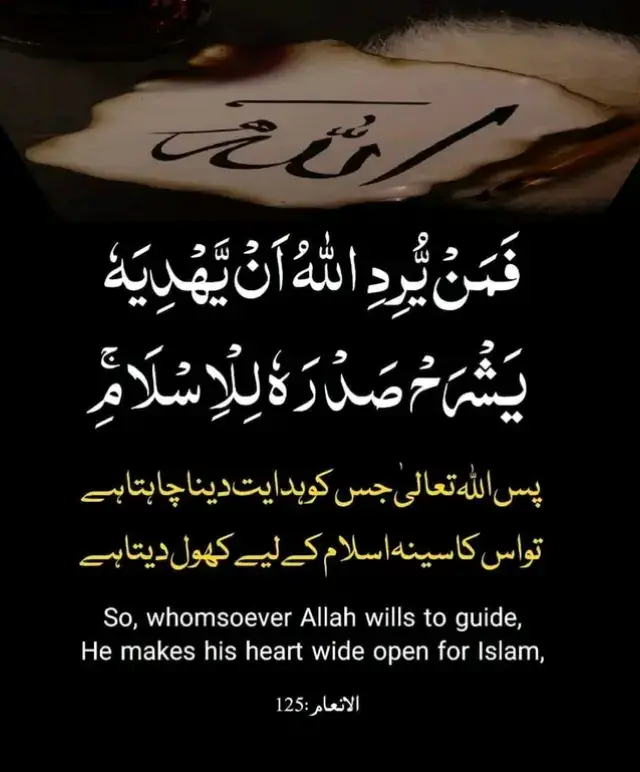 الله
فَمَنْ يُّرِدِ اللّٰهُ اَنْ يَّهْدِيَهٗ
يَشْرَحْ صَدْرَهٗ لِلْاِسْلَامِ ۚ
پس اللہ تعالیٰ جس کو ہدایت دینا چاہتا ہے
تو اس کا سینہ اسلام کے لیے کھول دیتا ہے
So, whomsoever Allah wills to guide,
He makes his heart wide open for Islam,
الانعام:125